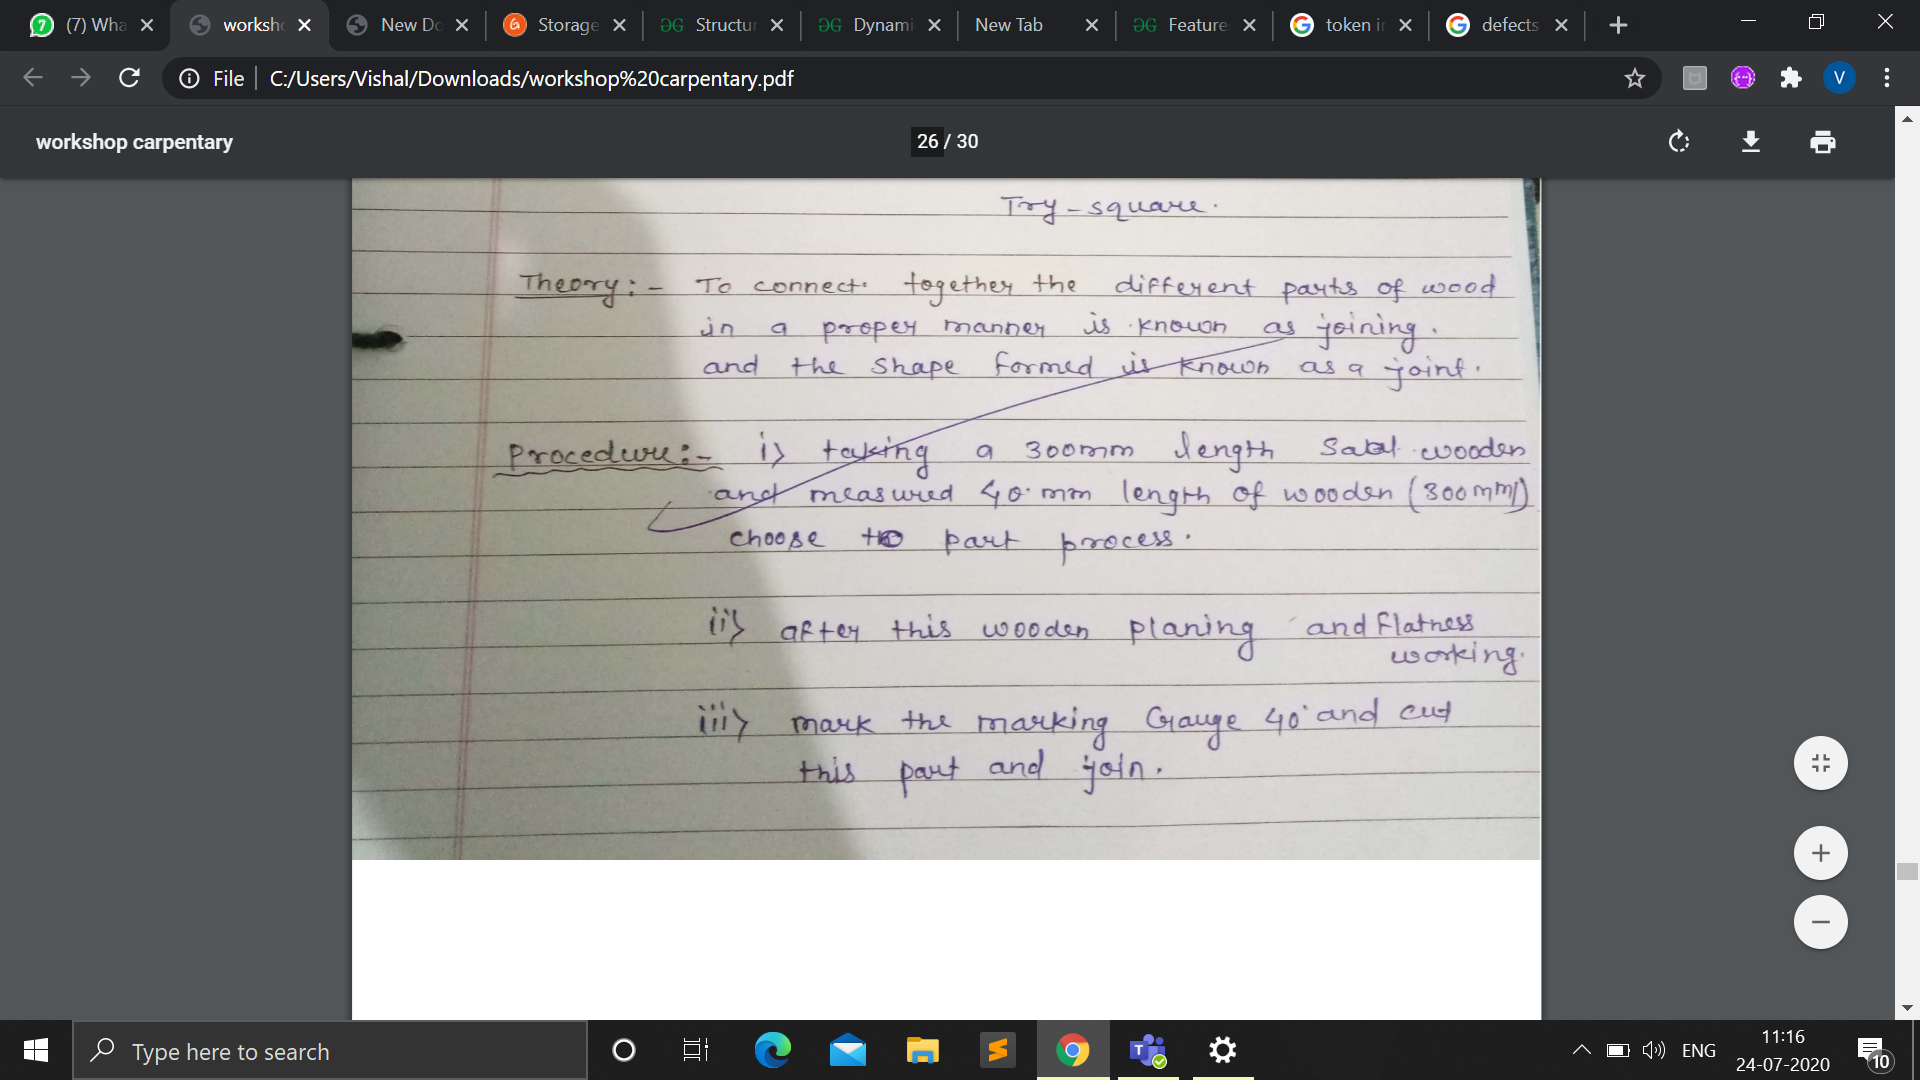 (7) Wha
worksh
New Do
Storage
Structur
Dynami
New Tab
Feature
token i
defects
File
C:/Users/Vishal/Downloads/workshop%20carpentary.pdf
V
workshop carpentary
26 / 30
Try-square.
Theory:- To connect together the different parts of wood
in a proper manner is known as joining.
and the shape formed is known as a joint.
Procedure:- i) taking a 300mm length wooden
and measured 40 mm length of wooden (300mm)
choose to part process.
ii) after this wooden planing and flatness
working.
iii) mark the marking Gauge 40° and cut
this part and join.
Type here to search
ENG
11:16
24-07-2020
10